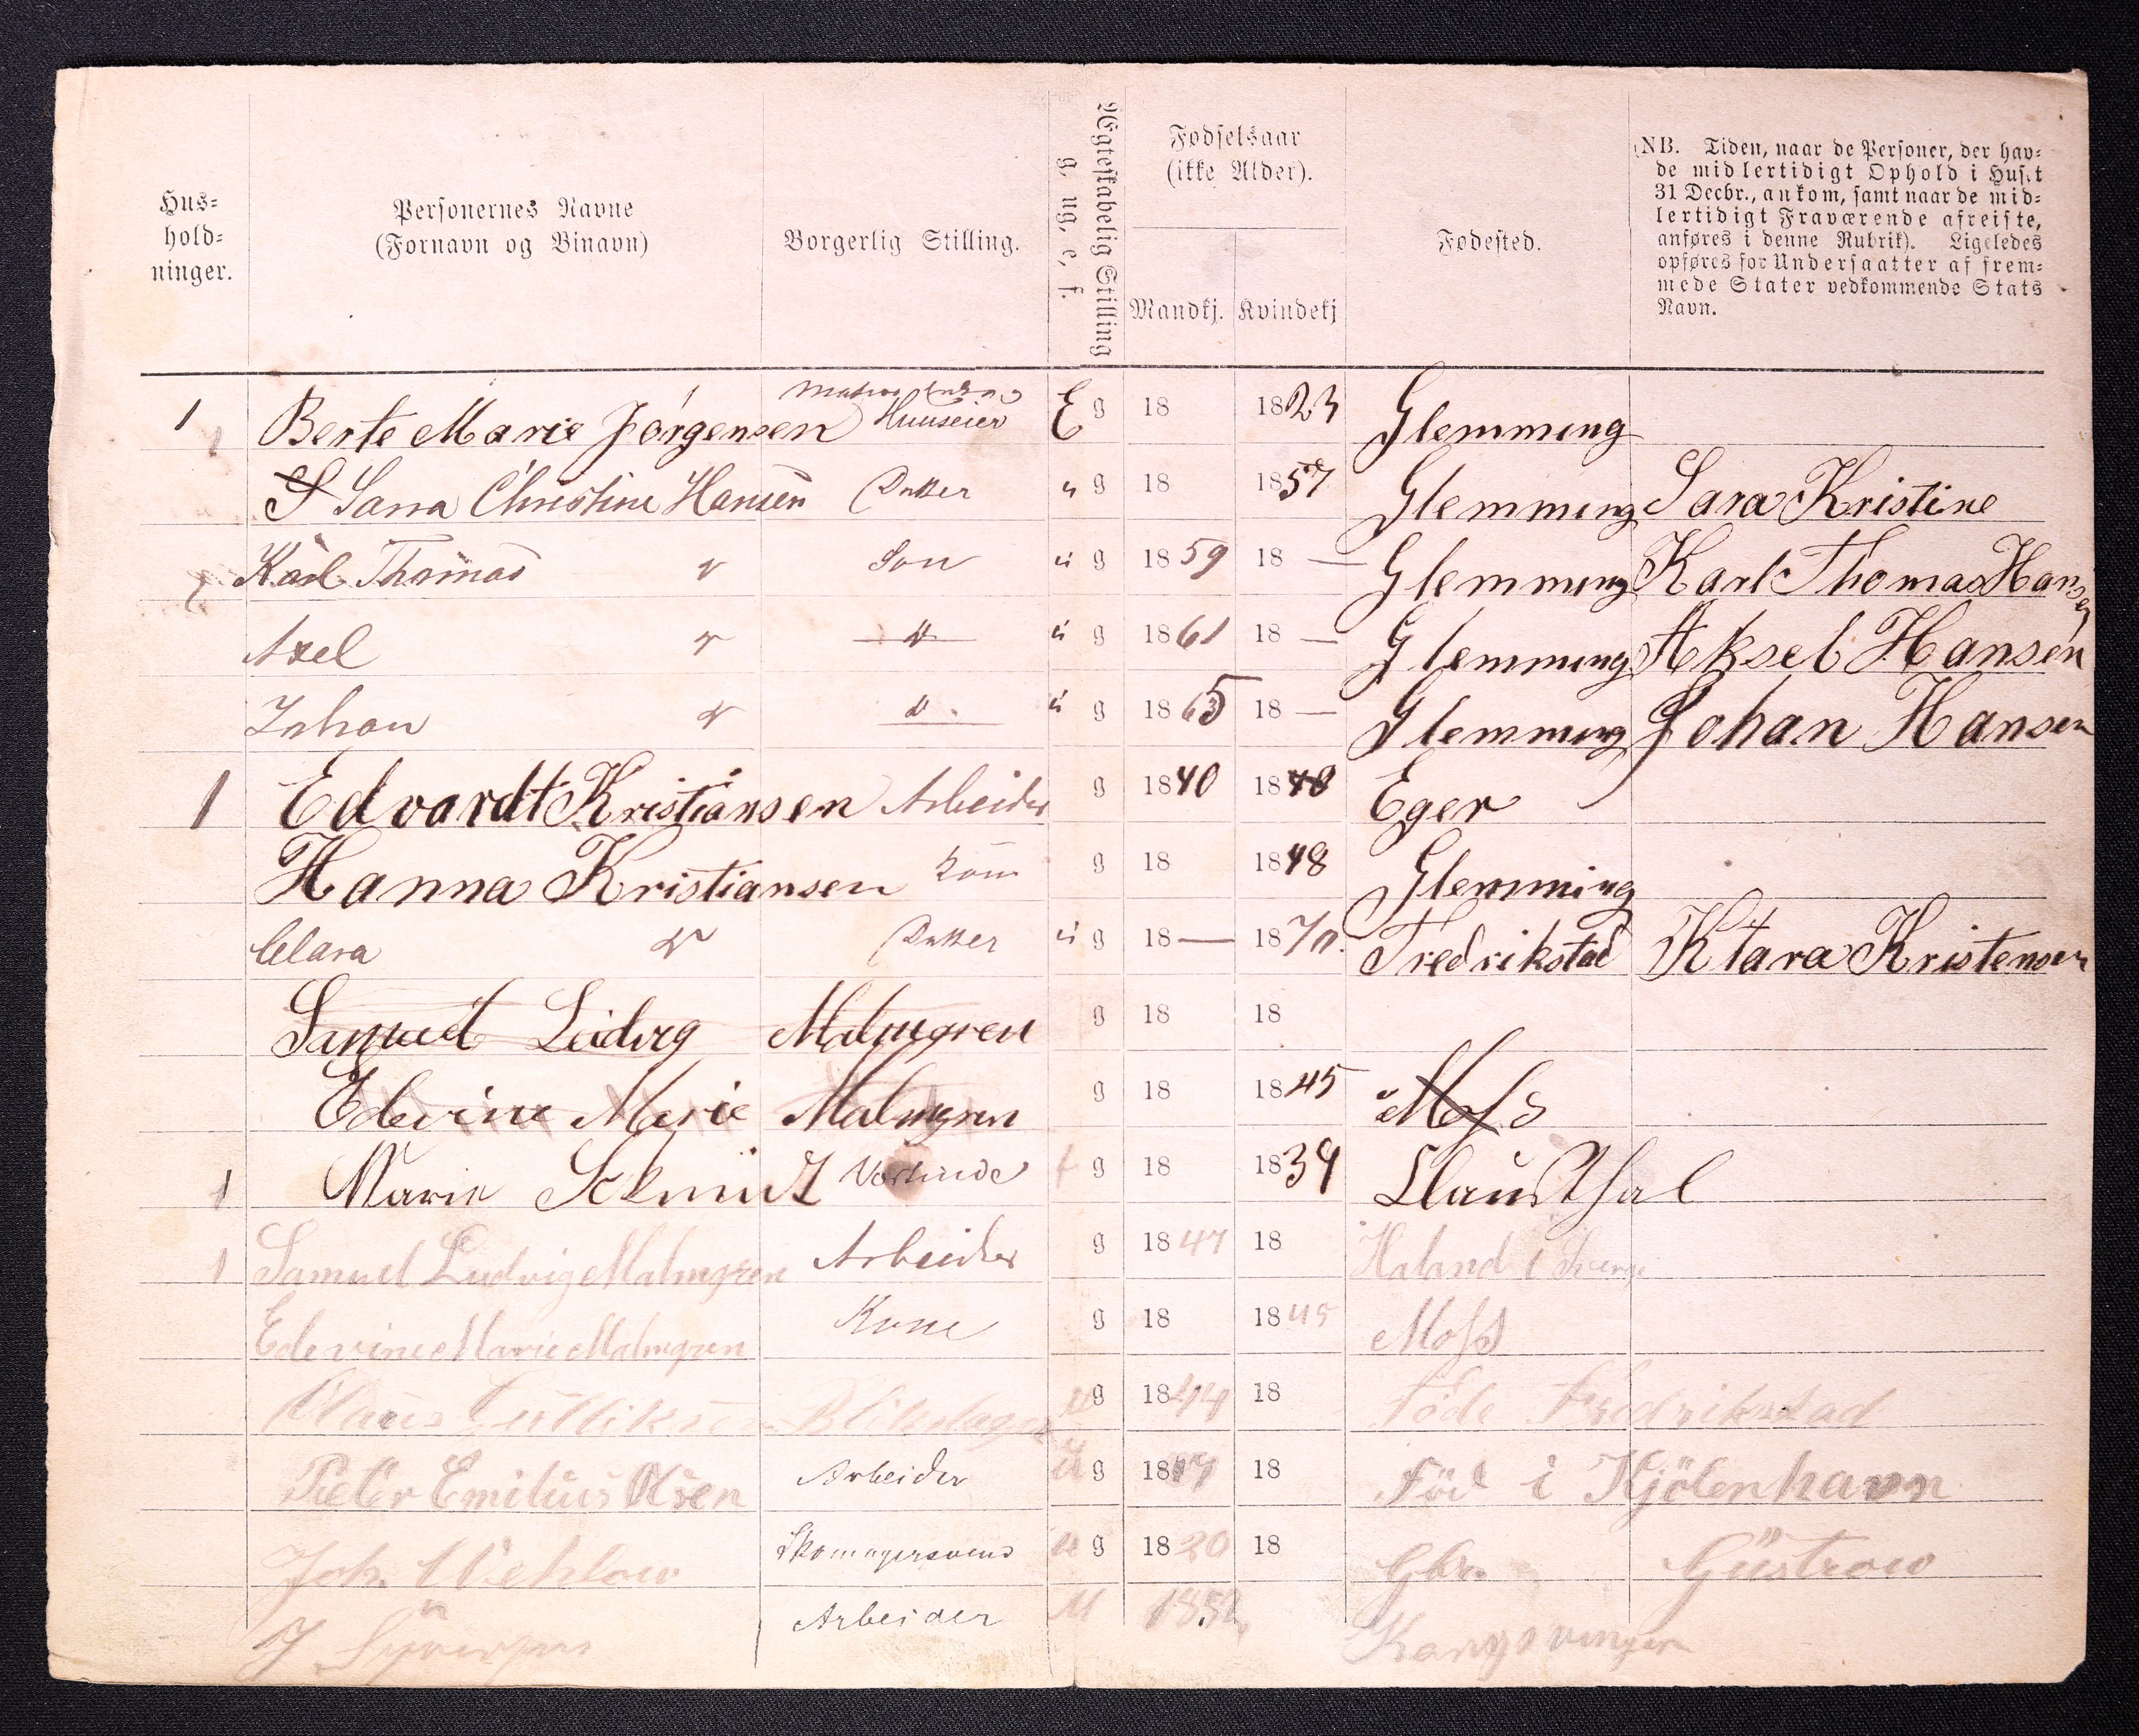 Hus-
hold-
ninger.
Personernes Navne
(Fornavn og Binavn)
Borgerlig Stilling.
Ægteskabelig Stilling
g, ug, e, f.
Fødselsaar
(ikke Alder).
Mandkj. Kvindekj
Fødested.
(NB. Tiden, naar de Personer, der hav-
de midlertidigt Ophold i Huset
31 Decbr., ankom, samt naar de mid-
lertidigt Fraværende afreiste,
anføres i denne Rubrik). Ligeledes
opføres for Undersaatter af frem-
mede Stater vedkommende Stats
Navn.
1 Berte Marie Jørgensen Huuseier E g 18 1823 Glemming
S Sara Christine Hansen Datter u g 18 1857 Glemming Sara Kristine
Karl Thomas Son u g 1859 18 — Glemming Karl Thomas Hansen
Axel u g 1861 18 — Glemming Aksel Hansen
Johan u g 1865 18 — Glemming Johan Hansen
1 Edvardt Kristiansen Arbeider g 1840 1848 Eger
Hanna Kristiansen Kone g 18 1848 Glemming
Clara Datter u g 18 — 1870 Fredrikstad Klara Kristensen
Samuel Ludvig Malmgren g 18 18
Edevine Marie Malmgren g 18 1845 Moss
1 Marie Schmidt g 18 1834 Clausthal
1 Samuel Ludvig Malmgren Arbeider g 1847 18 Haland i Sverge
Edevine Marie Malmgren Kone g 18 1845 Moss
Claus Gulliksen Blikslager u g 1844 18 Föde Fredrikstad
Peter Emilius Olsen Arbeider u g 18 18 Föd i Kjöbenhavn
Joh. Skomagersvend u g 1820 18 Gbr. Güstrow
J Arbeider 1852 Kongsvinger